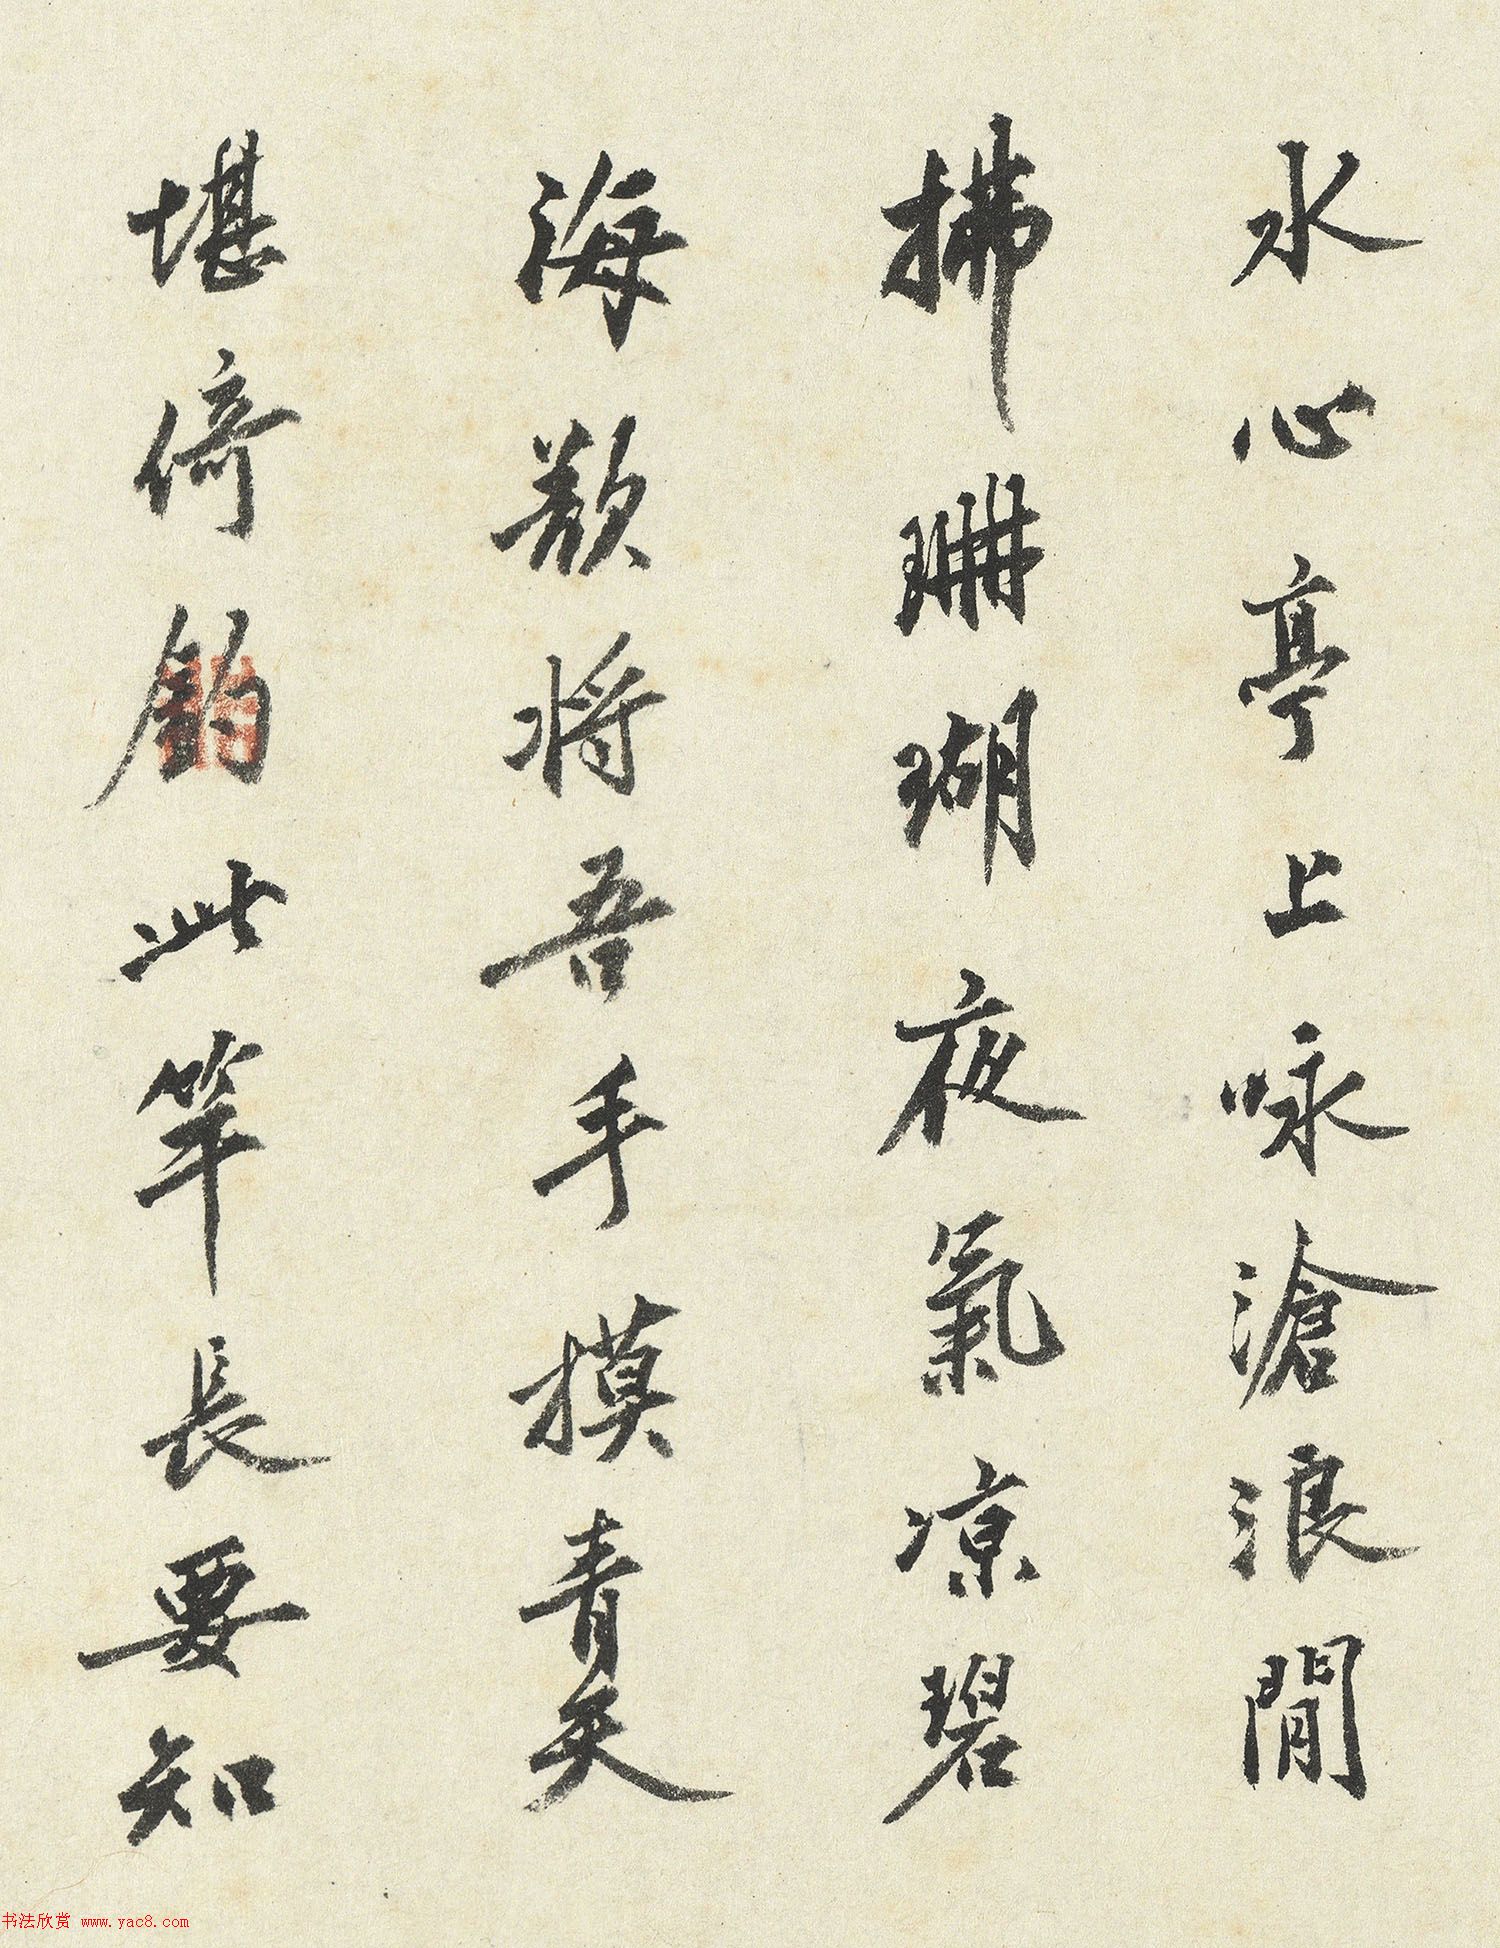 水心亭上咏滄浪閒
拂珊瑚夜氣凉碧
海欲將吾手摸青天
堪倚釣此竿長要知
书法欣赏 www.yac8.com